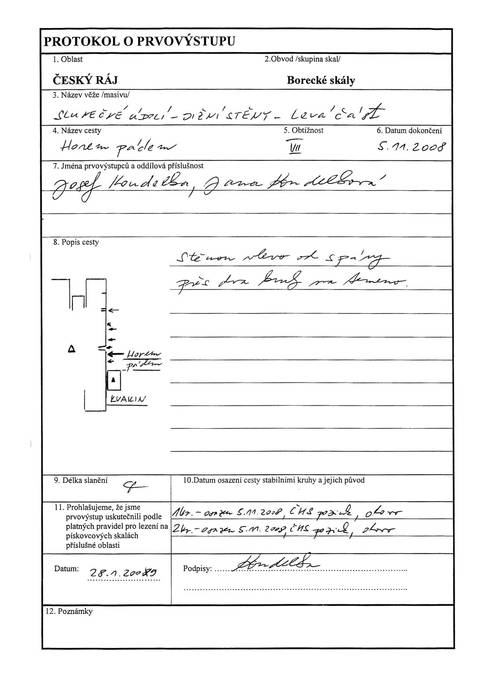 PROTOKOL O PRVOVÝSTUPU
1. Oblast
2.Obvod /skupina skal/
ČESKÝ RÁJ
Borecké skály
3. Název věže /masivu/
SLUNEČNÉ ÚDOLÍ - JIŽNÍ STĚNY - Levá část
4. Název cesty
5. Obtížnost
6. Datum dokončení
Horem pádem
VII
5.11.2008
7. Jména prvovýstupců a oddílová příslušnost
Josef Koudelka, Jana Koudelková
8. Popis cesty
Stěnou vlevo od spáry
přes dva kruhy na temeno.
Horem
pádem
KVAKIN
9. Délka slanění
10.Datum osazení cesty stabilními kruhy a jejich původ
11. Prohlašujeme, že jsme
prvovýstup uskutečnili podle
platných pravidel pro lezení na
pískovcových skalách
příslušné oblasti
1kr. - osazen 5.11.2008, ČHS
2kr. - osazen 5.11.2008, ČHS
Datum: 28.1.2009
Podpisy: Koudelka
12. Poznámky